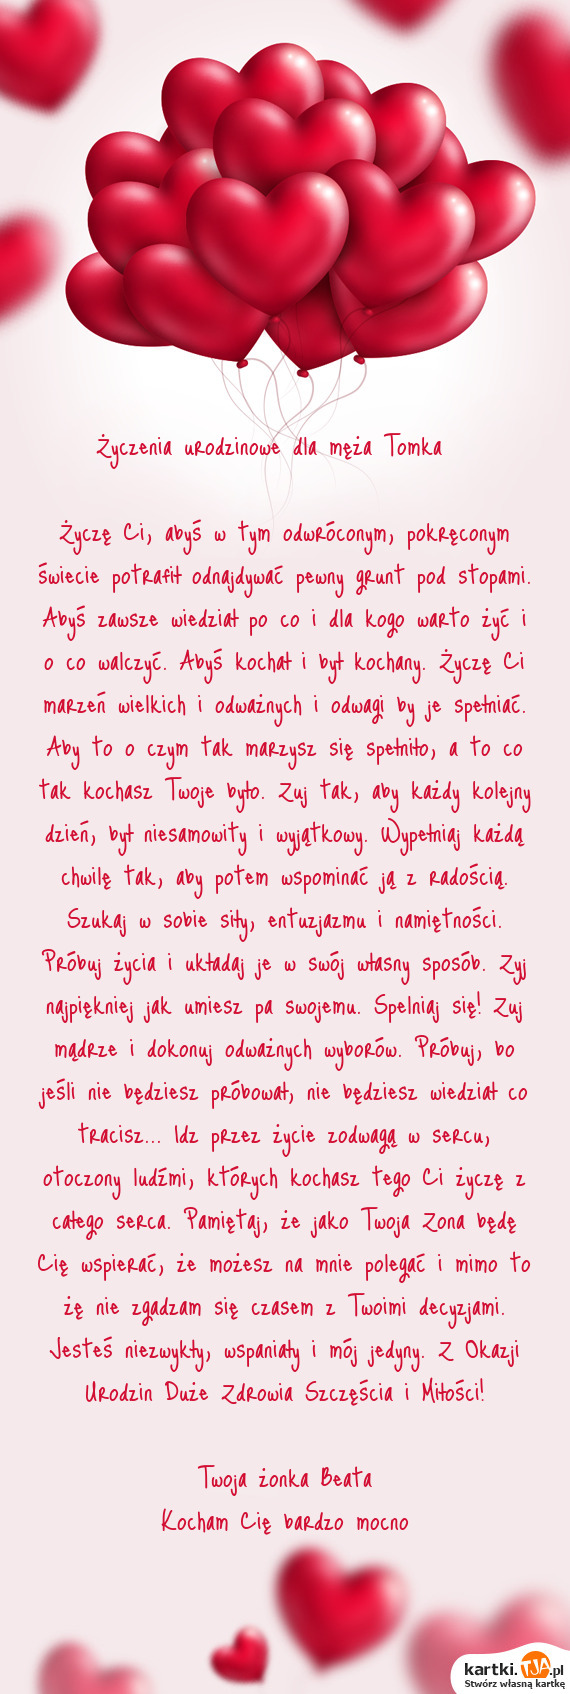 Życzenia urodzinowe dla męża Tomka
Życzę Ci, abyś w tym odwróconym, pokręconym
świecie potrafił odnajdywać pewny grunt pod stopami.
Abyś zawsze wiedział po co i dla kogo warto żyć i
o co walczyć. Abyś kochał i był kochany. Życzę Ci
marzeń wielkich i odważnych i odwagi by je spełniać.
Aby to o czym tak marzysz się spełniło, a to co
tak kochasz Twoje było. Zuj tak, aby każdy kolejny
dzień, był niesamowity i wyjątkowy. Wypełniaj każdą
chwilę tak, aby potem wspominać ją z radością.
Szukaj w sobie siły, entuzjazmu i namiętności.
Próbuj życia i układaj je w swój własny sposób. Zyj
najpiękniej jak umiesz pa swojemu. Spelniaj się! Zuj
mądrze i dokonuj odważnych wyborów. Próbuj, bo
jeśli nie będziesz próbował, nie będziesz wiedział co
tracisz... Idz przez życie zodwagą w sercu,
otoczony ludźmi, których kochasz tego Ci życzę z
całego serca. Pamiętaj, że jako Twoja Zona będę
Cię wspierać, że możesz na mnie polegać i mimo to
żę nie zgadzam się czasem z Twoimi decyzjami.
Jesteś niezwykły, wspaniały i mój jedyny. Z Okazji
Urodzin Duże Zdrowia Szczęścia i Miłości!
Twoja żonka Beata
Kocham Cię bardzo mocno
kartki.TJA.pl
Stwórz własną kartkę